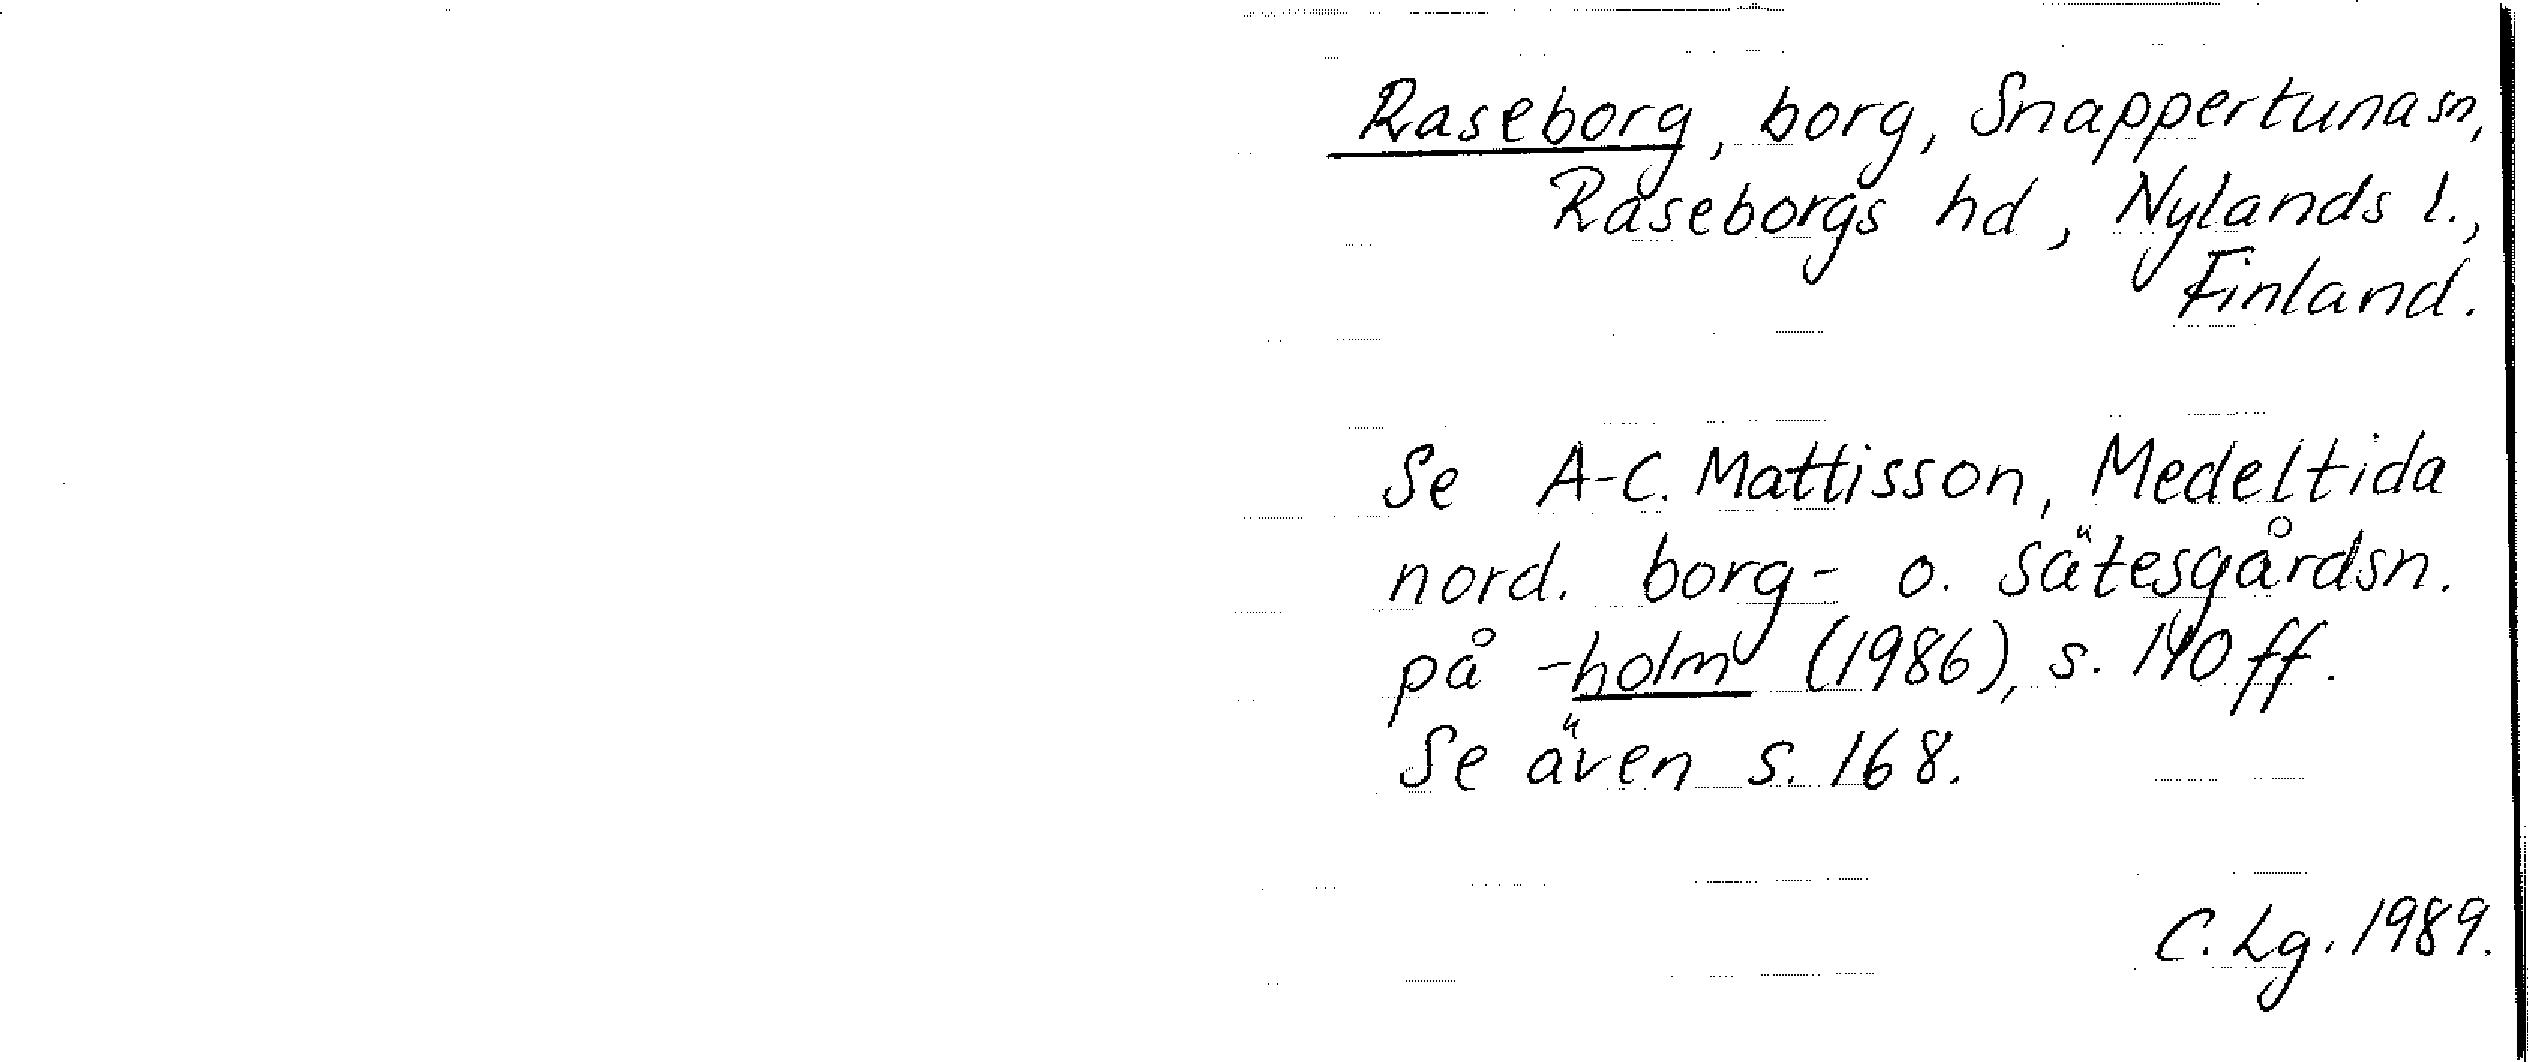 Raseborg, borg, Snappertuna sn,
Raseborgs hd, Nylands l.,
Finland.
Se A-C. Mattisson, Medeltida
nord. borg- o. sätesgårdsn.
på -holm (1986), s. 140 ff.
Se även s. 168.
C. Lg. 1989.